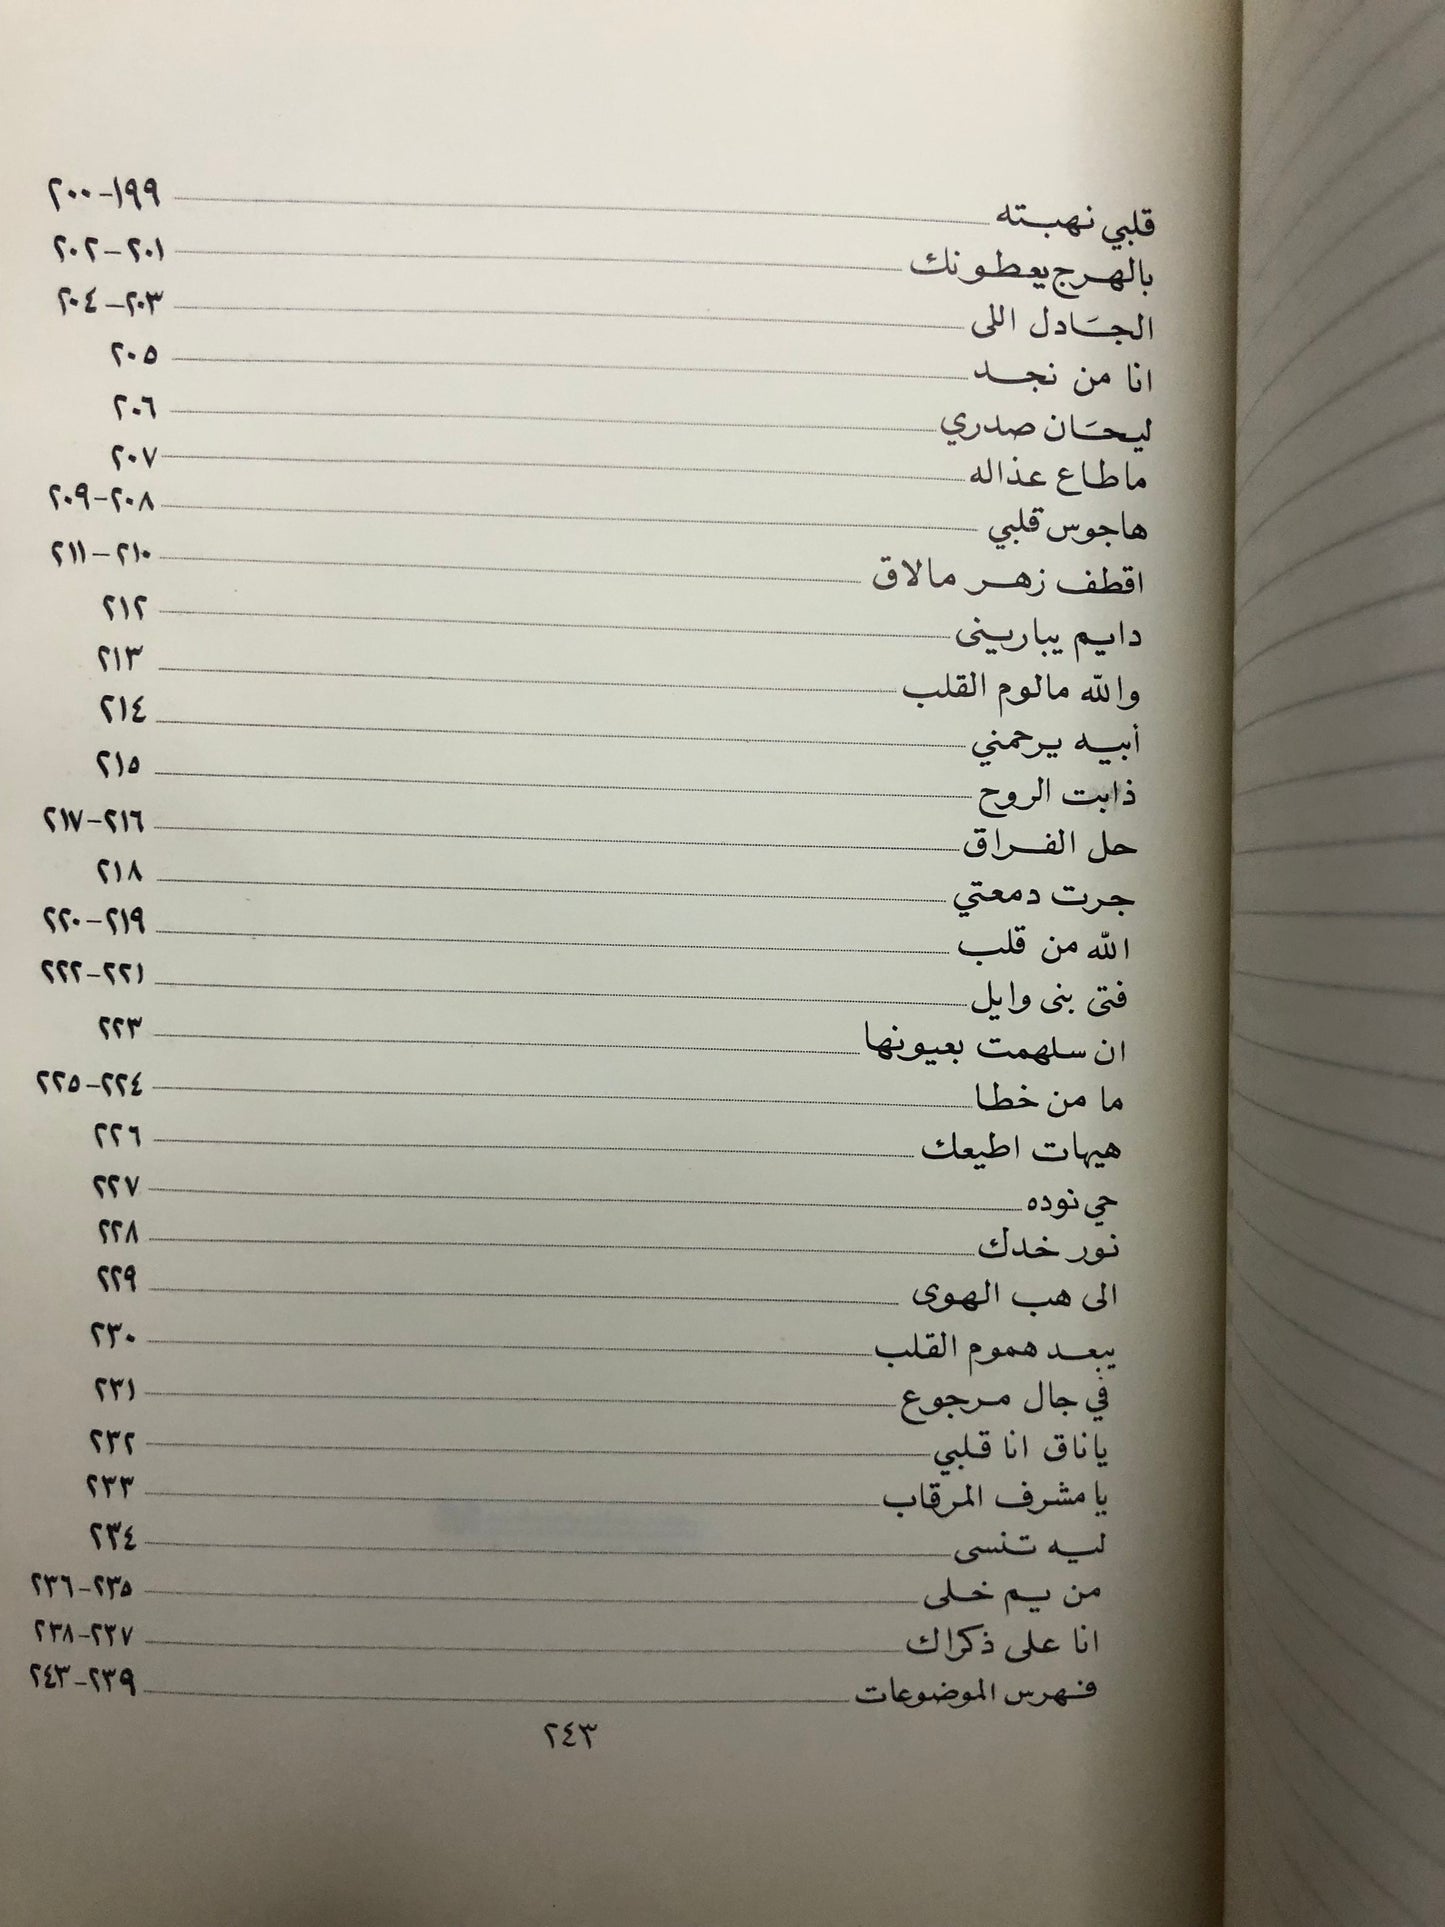 قلبي نهبته ٢٠٠-١٩٩
بالهرج يعطونك ٢٠٢-٢٠١
الجَادل اللى ٢٠٤-٢٠٣
انا من نجد ٢٠٥
ليحَان صدري ٢٠٦
ماطاع عذاله ٢٠٧
هاجوس قلبي ٢٠٩-٢٠٨
اقطف زهر مالاق ٢١١-٢١٠
دايم يبارينى ٢١٢
والله مالوم القلب ٢١٣
أبيه يرحمني ٢١٤
ذابت الروح ٢١٥
حل الفراق ٢١٧-٢١٦
جرت دمعتي ٢١٨
الله من قلب ٢٢٠-٢١٩
فتى بنى وايل ٢٢٢-٢٢١
ان سلهمت بعيونها ٢٢٣
ما من خطا ٢٢٥-٢٢٤
هيهات اطيعك ٢٢٦
حي نوده ٢٢٧
نور خدك ٢٢٨
الى هب الهوى ٢٢٩
يبعد هموم القلب ٢٣٠
في جال مرجوع ٢٣١
ياناق انا قلبي ٢٣٢
يا مشرف المرقاب ٢٣٣
ليه تنسى ٢٣٤
من يم خلى ٢٣٦-٢٣٥
انا على ذكراك ٢٣٨-٢٣٧
فهرس الموضوعات ٢٤٣-٢٣٩
٢٤٣